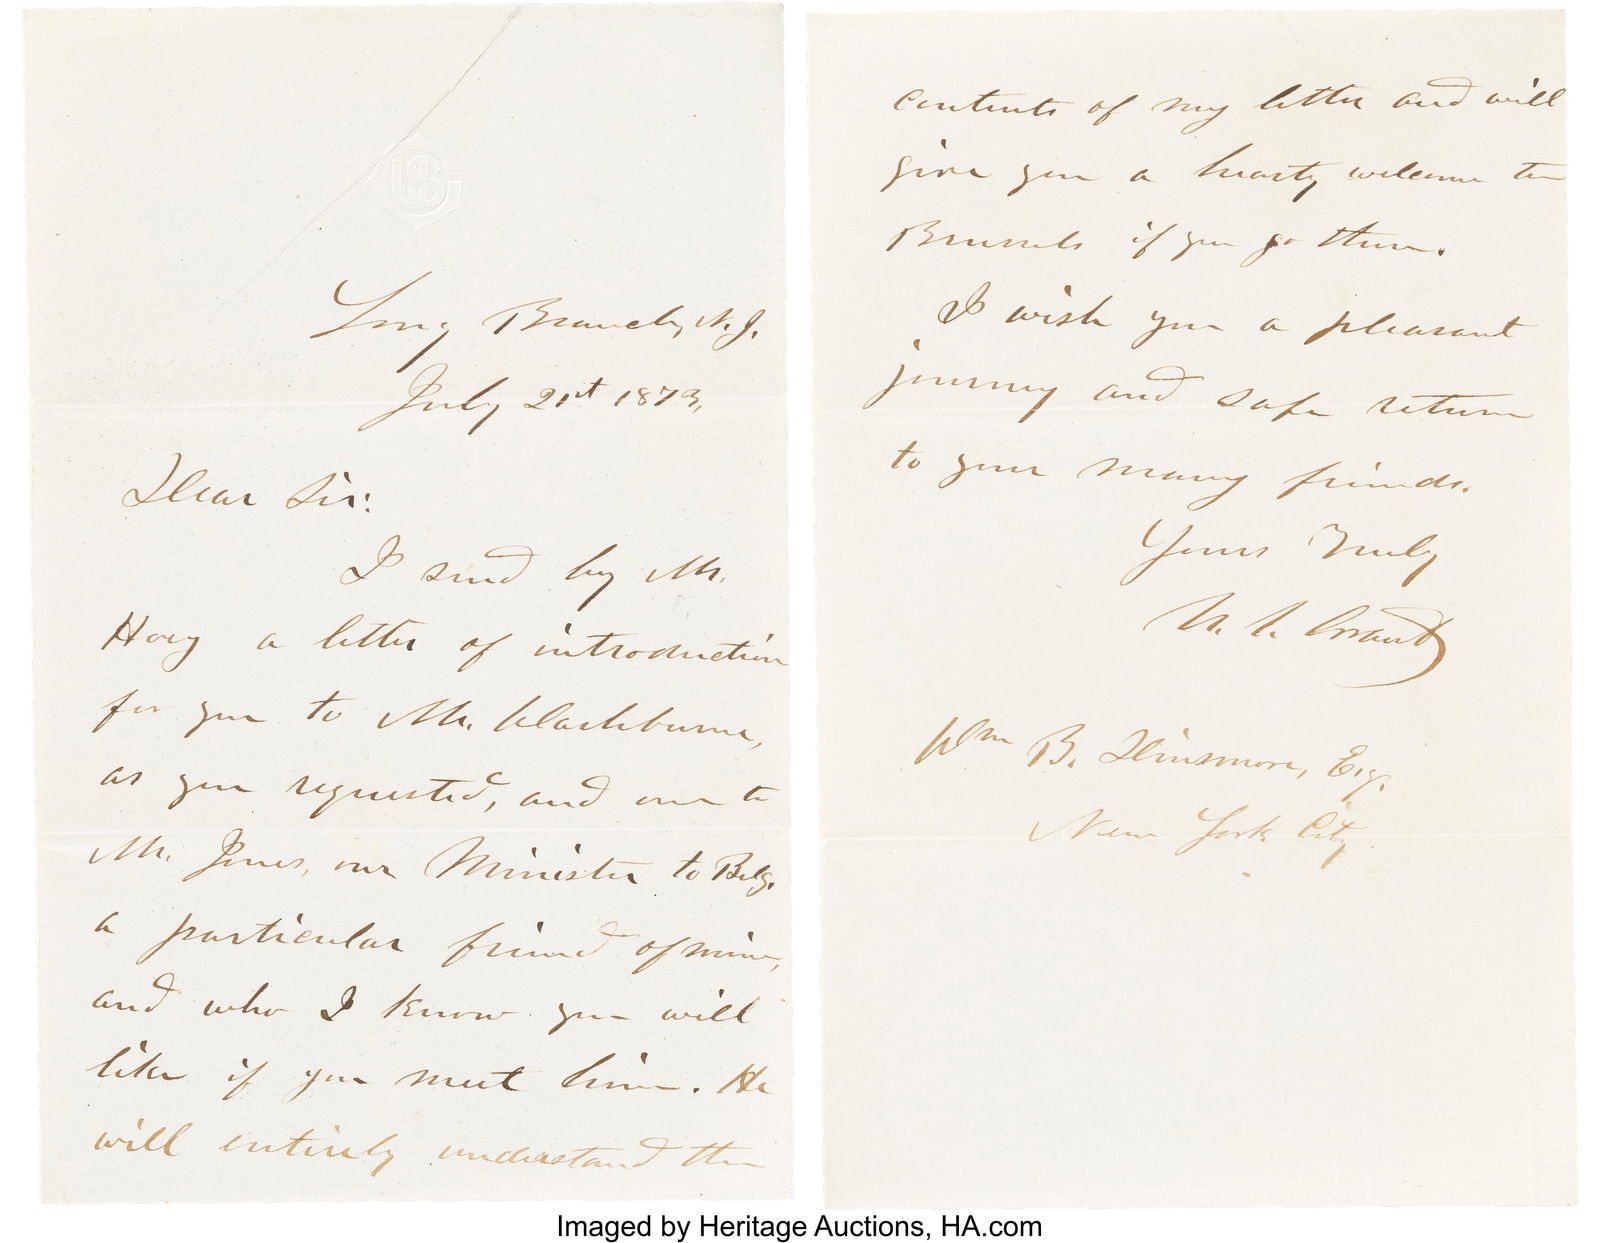 USG
Long Branch, N. J.
July 21st 1873,
Dear Sir:
I send by Mr.
Hoey a letter of introduction
for you to Mr. Washburne,
as you requested, and one to
Mr. Jones, our Minister to Belg.
a particular friend of mine,
and who I know you will
like if you meet him. He
will entirely understand the
contents of my letter and will
give you a hearty welcome to
Brussels if you go there.
I wish you a pleasant
journey and safe return
to your many friends.
Yours Truly
U. S. Grant
Wm B. Dinsmore, Esq.
New York City
Imaged by Heritage Auctions, HA.com